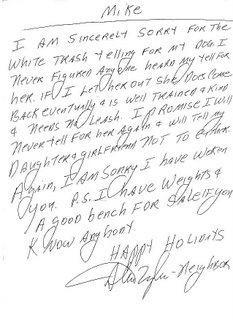 Mike
I AM SINCERELY SORRY FOR THE
WHITE TRASH YELLING FOR MY DOG I
NEVER FIGURED ANYONE HEARD MY YELL FOR
HER. IF I LET HER OUT SHE DOES COME
BACK EVENTUALLY & IS WELL TRAINED & KIND
& NEEDS NO LEASH. I PROMISE I WILL
NEVER YELL FOR HER AGAIN & WILL TELL MY
DAUGHTER & GIRLFRIEND NOT TO EITHER.
AGAIN, I AM SORRY I HAVE WOKEN
YOU. P.S. I HAVE WEIGHTS &
A GOOD BENCH FOR SALE IF YOU
KNOW ANYBODY.
HAPPY HOLIDAYS
-NEIGHBOR